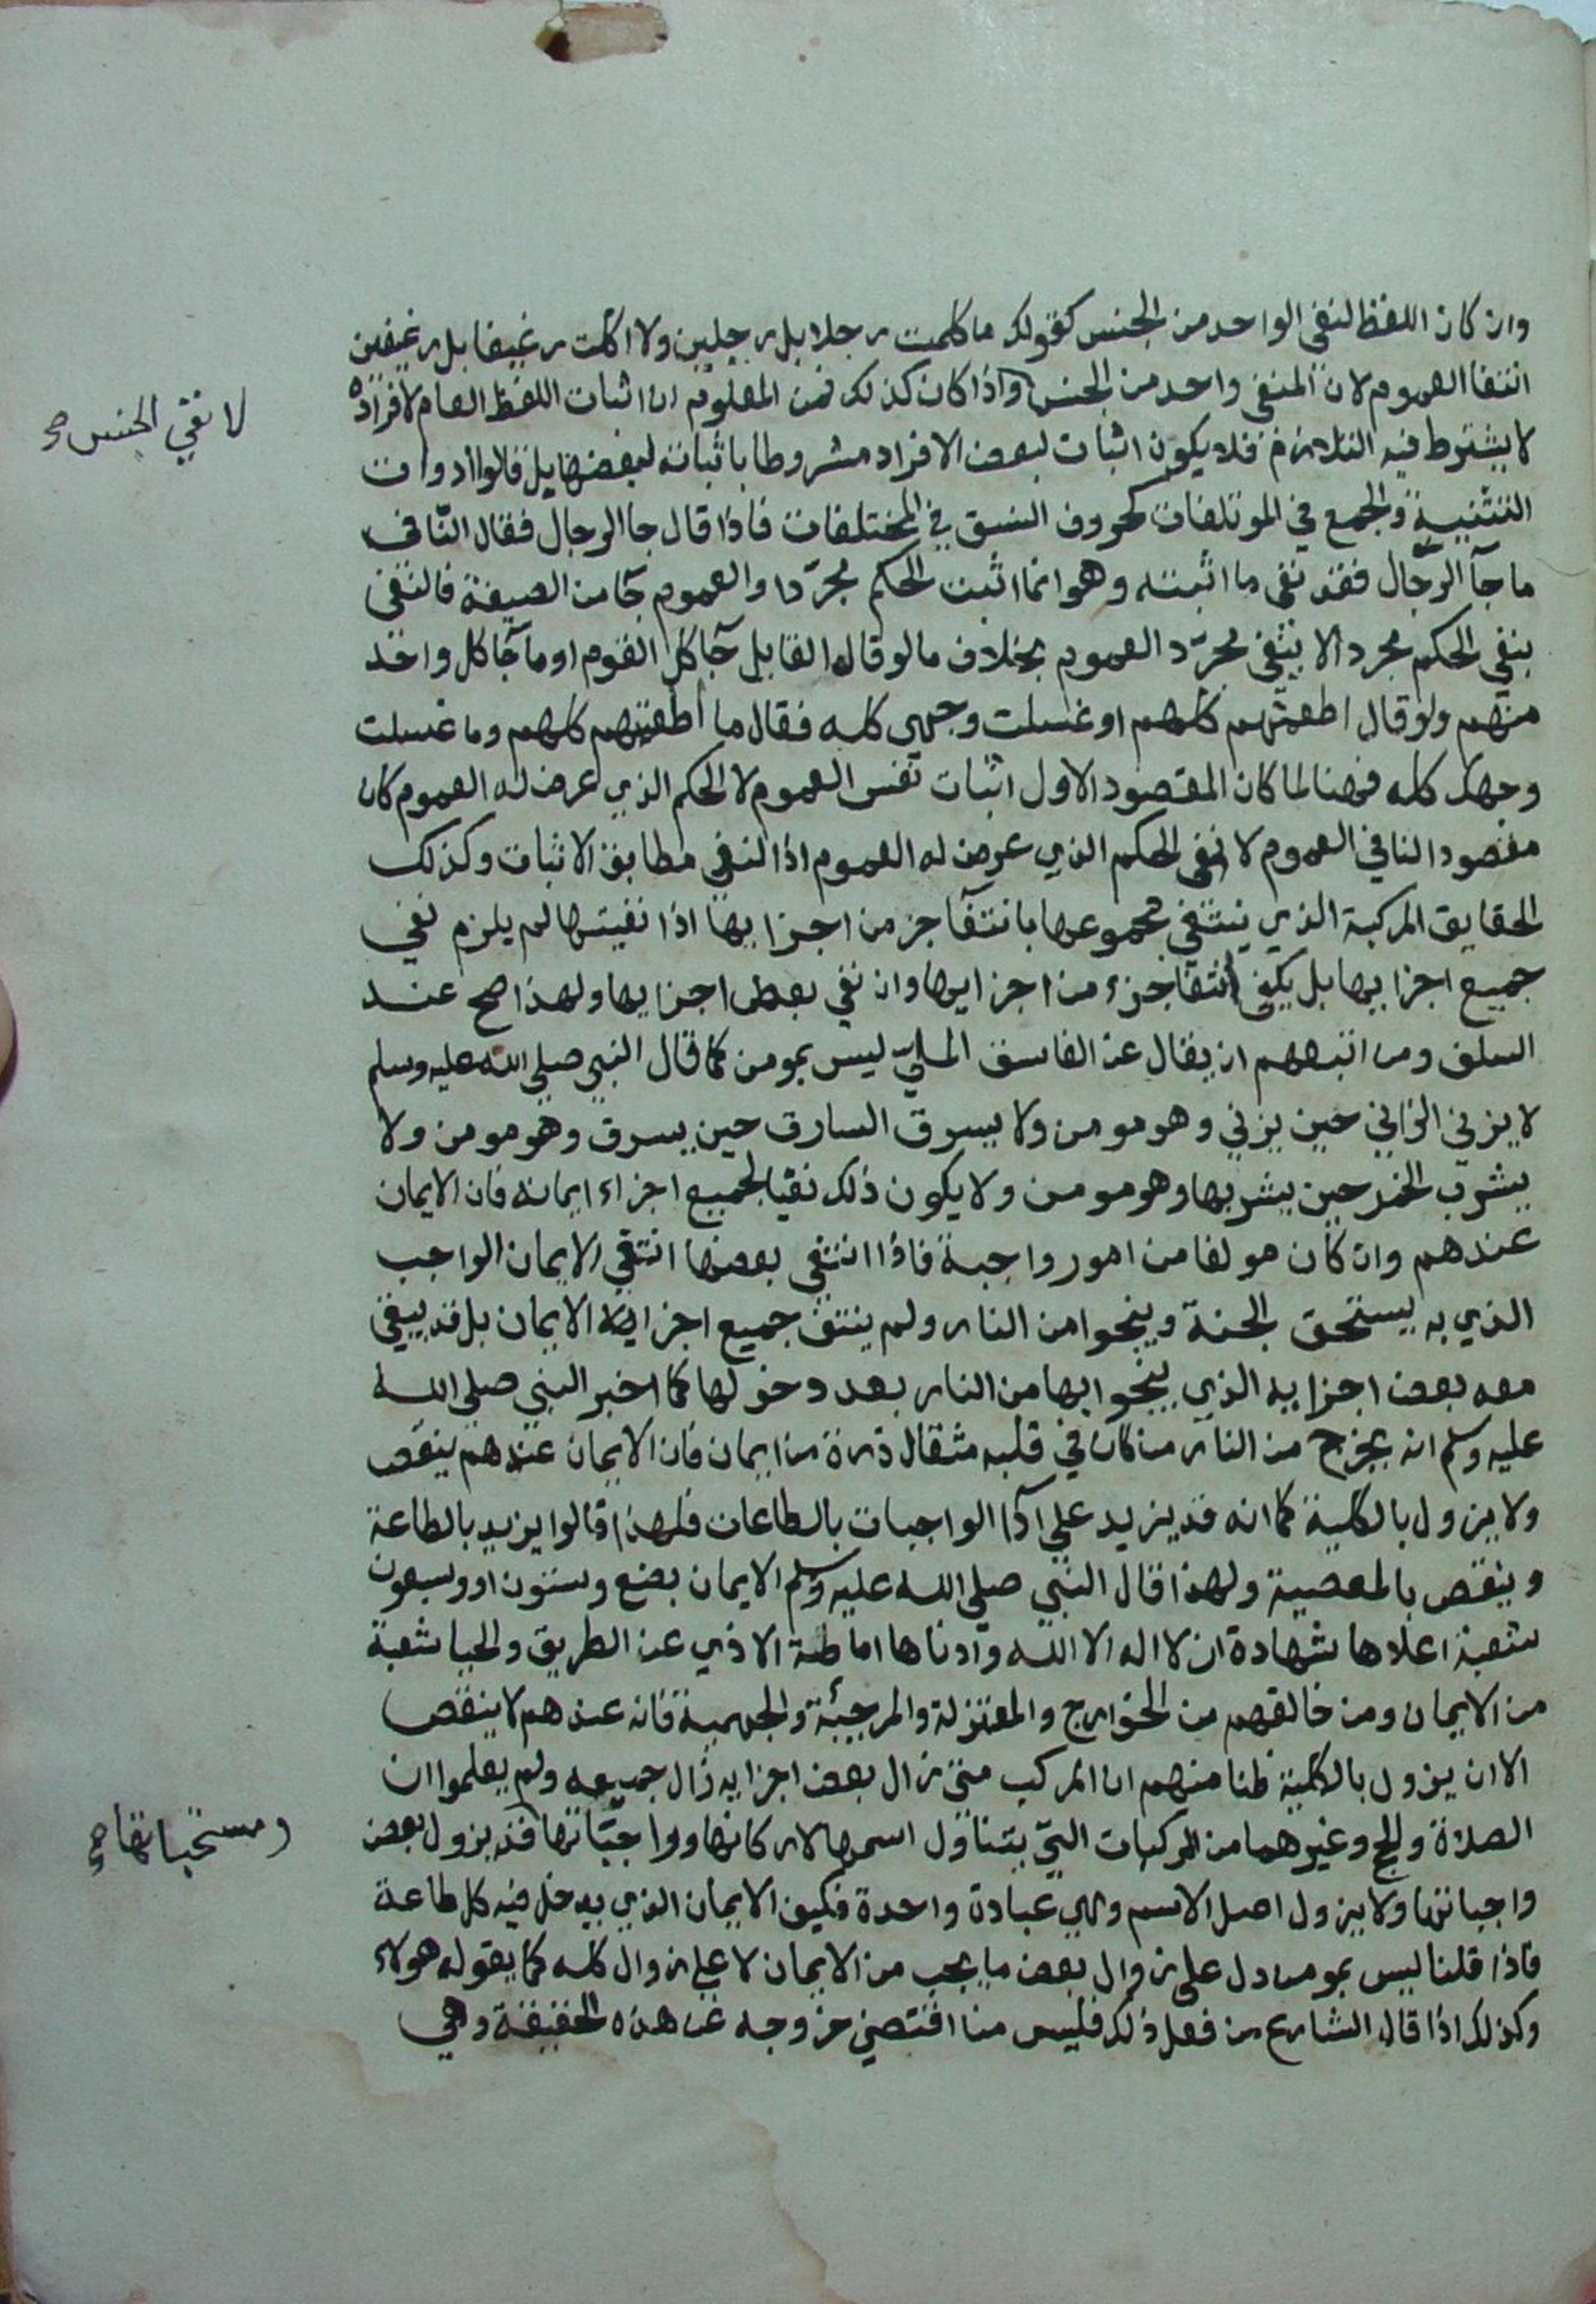 وان كان اللفظ لنفي الواحد من الجنس كقولك ما كلمت رجلا بل رجلين ولا اكلت رغيفا بل رغيفين
انتفا العموم لان المنفي واحد من الجنس واذا كان كذلك فمن المعلوم ان اثبات اللفظ العام لافراده
لا نفي الجنس صح
لا يشترط فيه التلازم فلا يكون اثبات لبعض الافراد مشروطا باثباته لبعضها بل قالوا ادوات
التثنية والجمع في الموتلفات كحروف النسق في المختلفات فاذا قال جا الرجال فقال النافي
ما جآ الرجال فقد نفى ما اثبته وهو انما اثبت الحكم مجردا والعموم جا من الصيغة فالنفي
بنفي الحكم مجردا لا بنفي مجرد العموم بخلاف ما لو قال القايل جآ كل القوم او ما جآ كل واحد
منهم ولو قال اطعمتهم كلهم او غسلت وجهي كله فقال ما اطعمتهم كلهم وما غسلت
وجهك كله فهنا لما كان المقصود الاول اثبات نفس العموم لا الحكم الذي عرض له العموم كان
مقصود النافي العموم لا نفي الحكم الذي عرض له العموم اذ النفي مطابق الاثبات وكذلك
الحقايق المركبة الذي ينتفي مجموعها بانتفآ جز من اجزايها اذا نفيتها لم يلزم نفي
جميع اجزايها بل يكفي انتفا جزء من اجزايها وان نفي بعض اجزايها ولهذا صح عند
السلف ومن اتبعهم ان يقال عن الفاسق الملي ليس بمومن كما قال النبي صلى الله عليه وسلم
لا يزني الزاني حين يزني وهو مومن ولا يسرق السارق حين يسرق وهو مومن ولا
يشرب الخمر حين يشربها وهو مومن ولا يكون ذلك نفيا لجميع اجزاء ايمانه فان الايمان
عندهم وان كان مولفا من امور واجبة فاذا انتفى بعضها انتفي الايمان الواجب
الذي به يستحق الجنة وينجوا من النار ولم ينتف جميع اجزاية الايمان بل قد يبقى
معه بعض اجزايه الذي ينجوا بها من النار بعد دخولها كما اخبر النبي صلى الله
عليه وسلم انه يخرج من النار من كان في قلبه مثقال ذرة من ايمان فان الايمان عندهم ينقص
ولا يزول بالكلية كما انه قد يزيد علي ادآ الواجبات بالطاعات فلهذا قالوا يزيد بالطاعة
وينقص بالمعصية ولهذا قال النبي صلى الله عليه وسلم الايمان بضع وستون او وسبعون
شعبة اعلاها شهادة ان لا اله الا الله وادناها اماطة الاذي عن الطريق والحيا شعبة
من الايمان ومن خالفهم من الخوارج والمعتزلة والمرجئة والجهمية فانه عندهم لا ينقص
الا ان يزول بالكلية ظنا منهم ان المركب متى زال بعض اجزايه زال جميعه ولم يعلموا ان
الصلاة والحج وغيرهما من المركبات التي يتناول اسمها لاركانها وواجباتها قد يزول بعض
ومستحباتها صح
واجباتها ولا يزول اصل الاسم وهي عبادة واحدة فكيف الايمان الذي يدخل فيه كل طاعة
فاذا قلنا ليس بمومن دل على زوال بعض ما يجب من الايمان لا علي زوال كله كما يقوله هولاء
وكذلك اذا قال الشارع من فعل ذلك فليس منا اقتضي خروجه عن هذه الحقيقة وهي